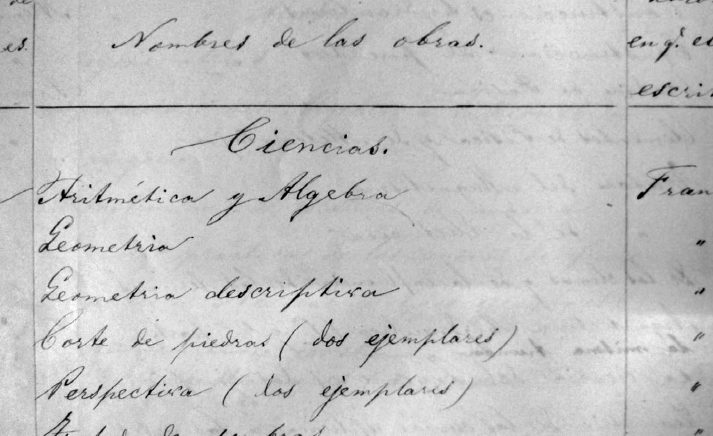 es.
Nombres de las obras.
en q.e el
escri
Ciencias.
Aritmética y Algebra
Fran
Geometria
"
Geometria descriptiva
"
Corte de piedras (dos ejemplares)
"
Perspectiva (dos ejemplares)
"